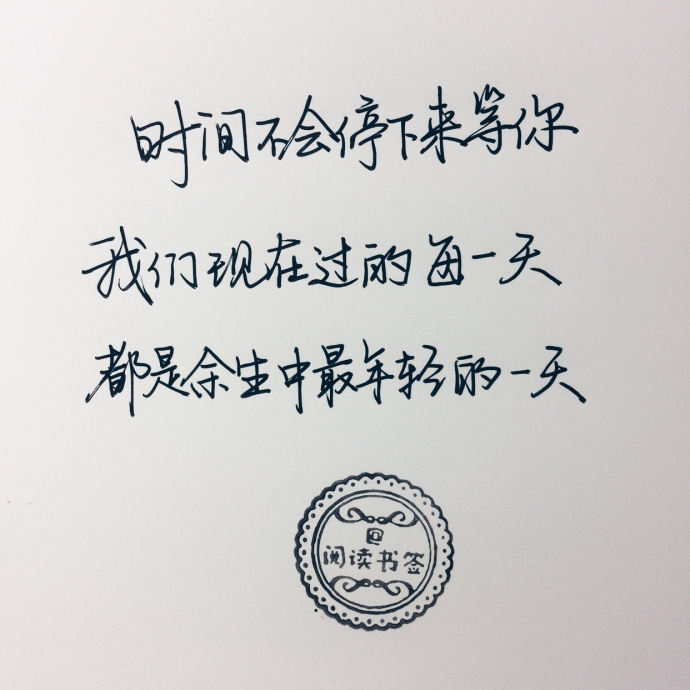 时间不会停下来等你
我们现在过的每一天
都是余生中最年轻的一天
@
阅读书签